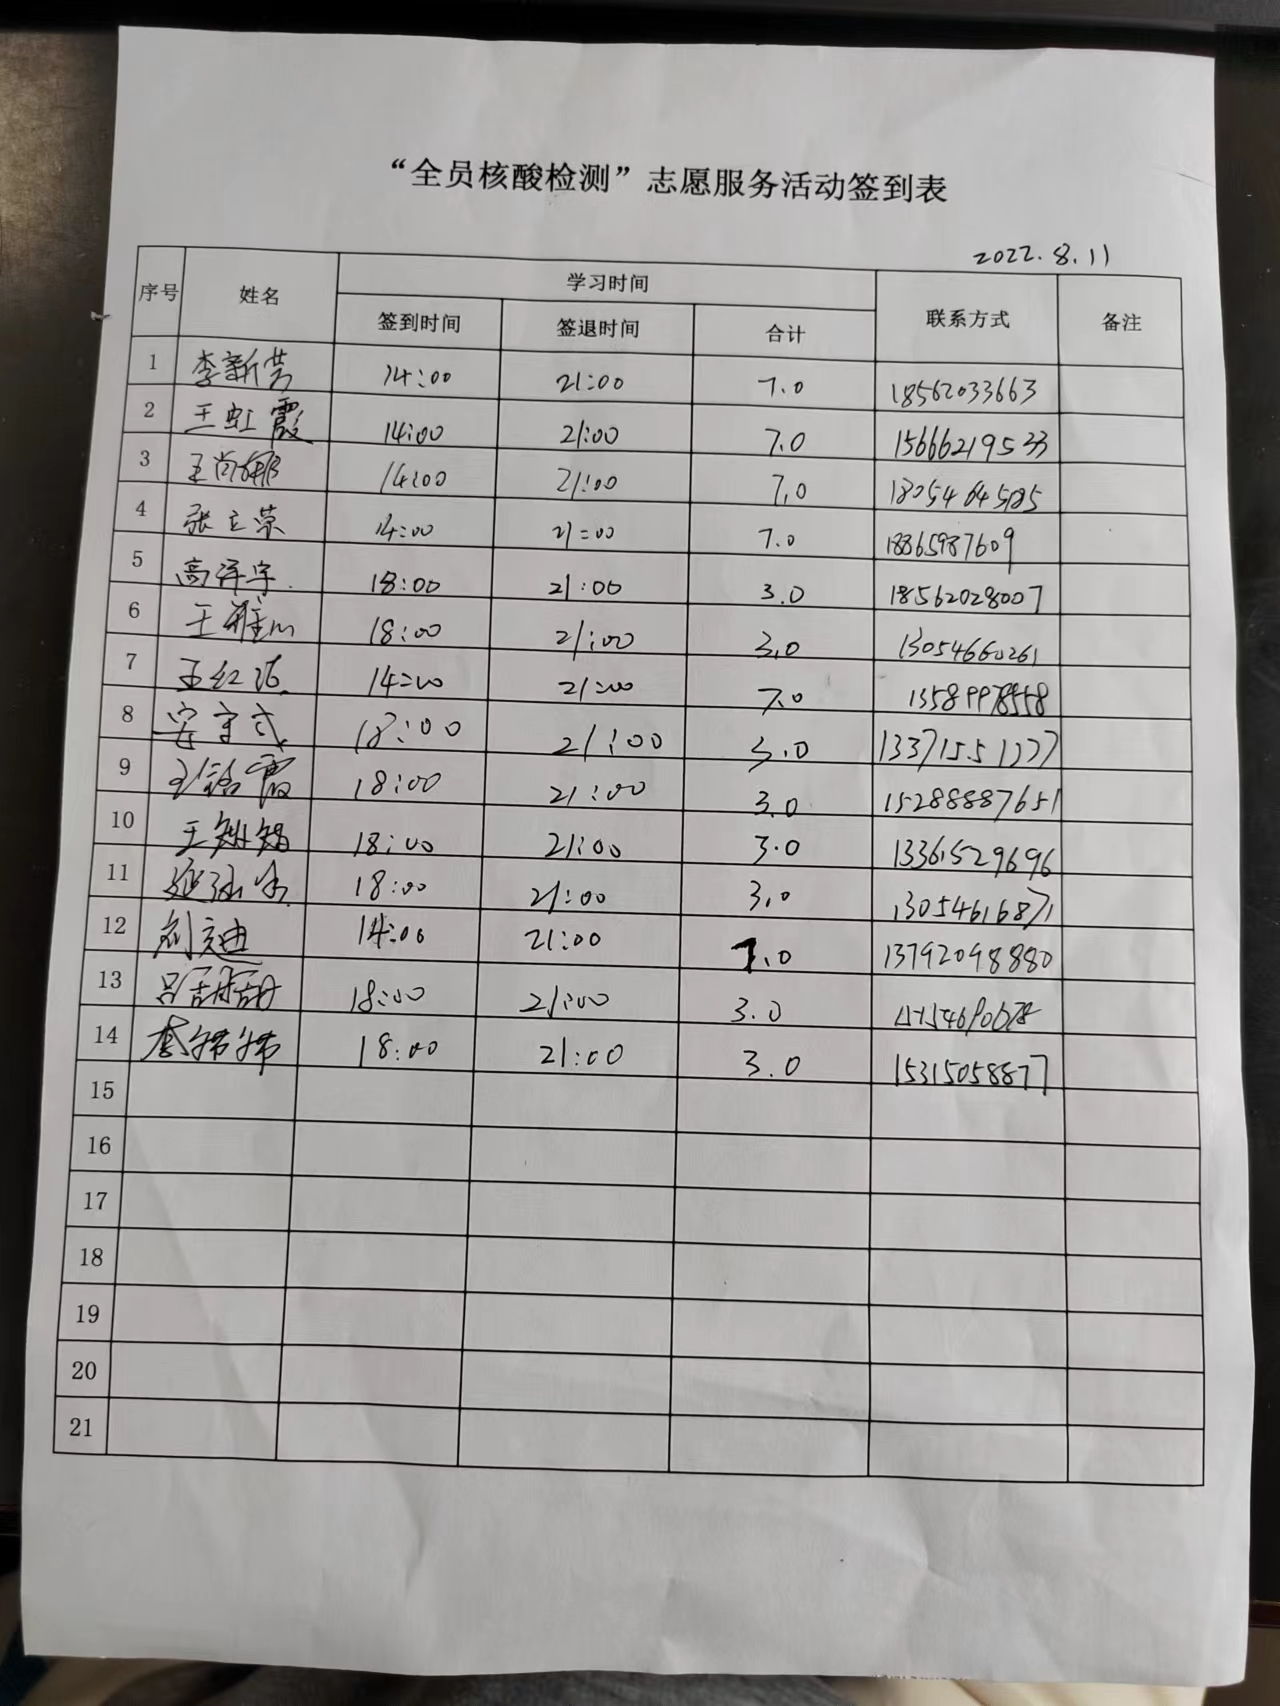 “全员核酸检测”志愿服务活动签到表
2022.8.11
序号 姓名 学习时间 联系方式 备注
签到时间 签退时间 合计
1 李新芸 14:00 21:00 7.0 18562033663
2 王虹霞 14:00 21:00 7.0 15666219533
3 王尚娜 14:00 21:00 7.0
4 张立荣 14:00 21:00 7.0 18365987609
5 高泽宇 18:00 21:00 3.0 18562028007
6 王雅 18:00 21:00 3.0 13054660261
7 王红 14:00 21:00 7.0
8 18:00 21:00 3.0 13371551777
9 霞 18:00 21:00 3.0 15288887651
10 王 18:00 21:00 3.0 13361529696
11 18:00 21:00 3.0 13054616871
12 刘文迪 14:00 21:00 7.0 13792098880
13 吕甜甜 18:00 21:00 3.0
14 李娜娜 18:00 21:00 3.0 15315058877
15
16
17
18
19
20
21